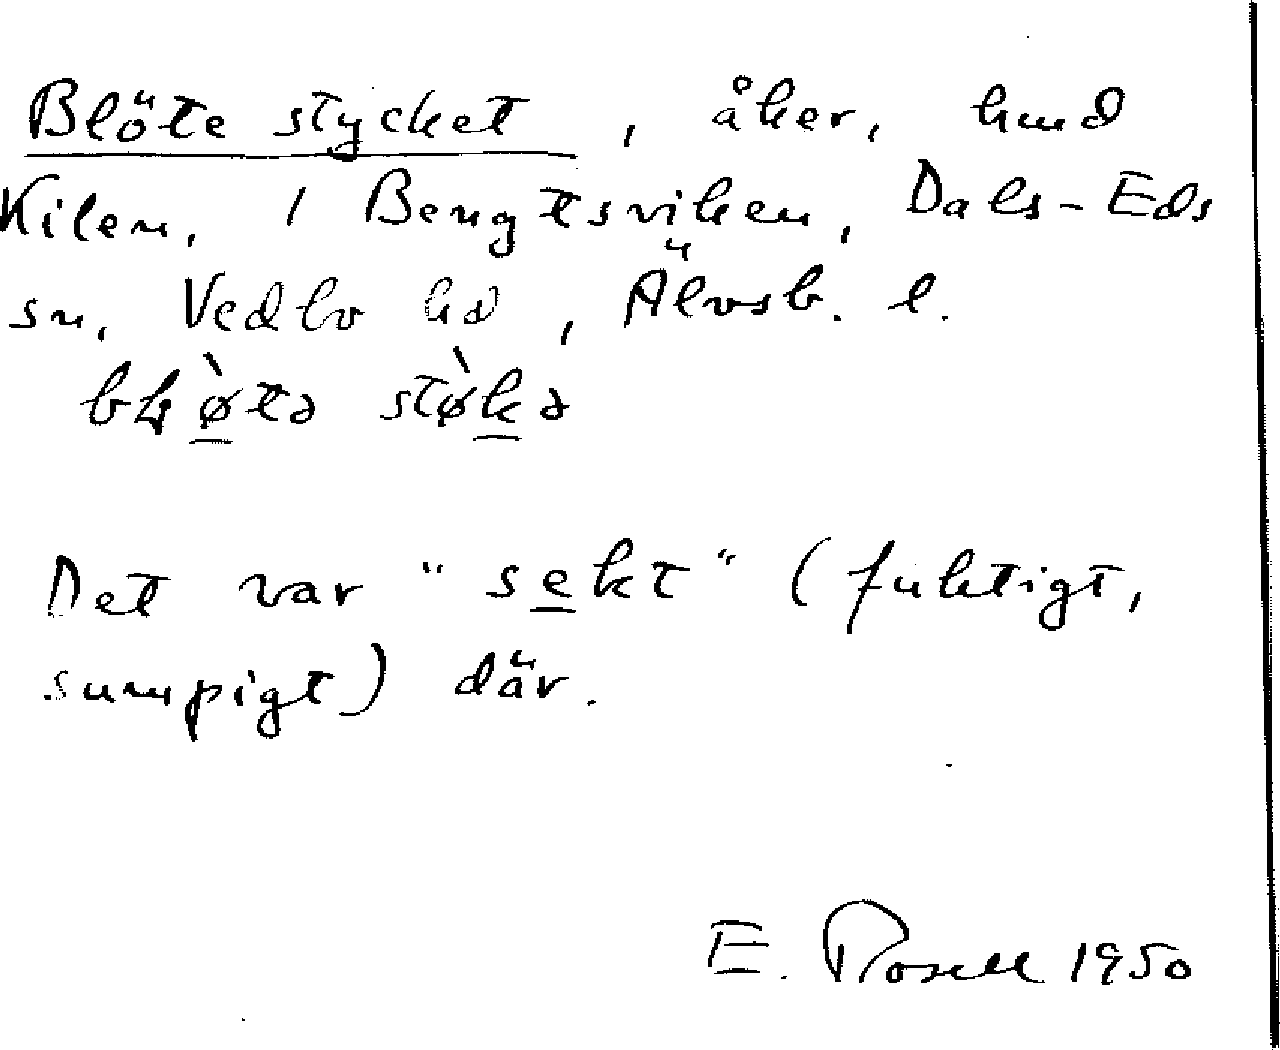 Blöte stycket, åker, hmd
Kilen, 1 Bengtsviken, Dals-Eds
sn, Vedbo hd, Älvsb. l.
Det var "sekt" (fuktigt,
sumpigt) där.
E. Rosell 1950